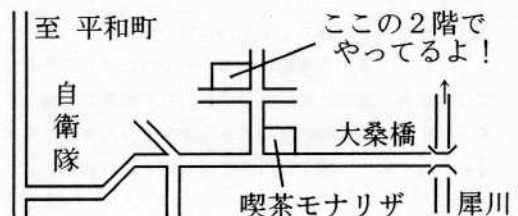 至 平和町
ここの2階で
やってるよ!
自衛隊
大桑橋
喫茶モナリザ
犀川